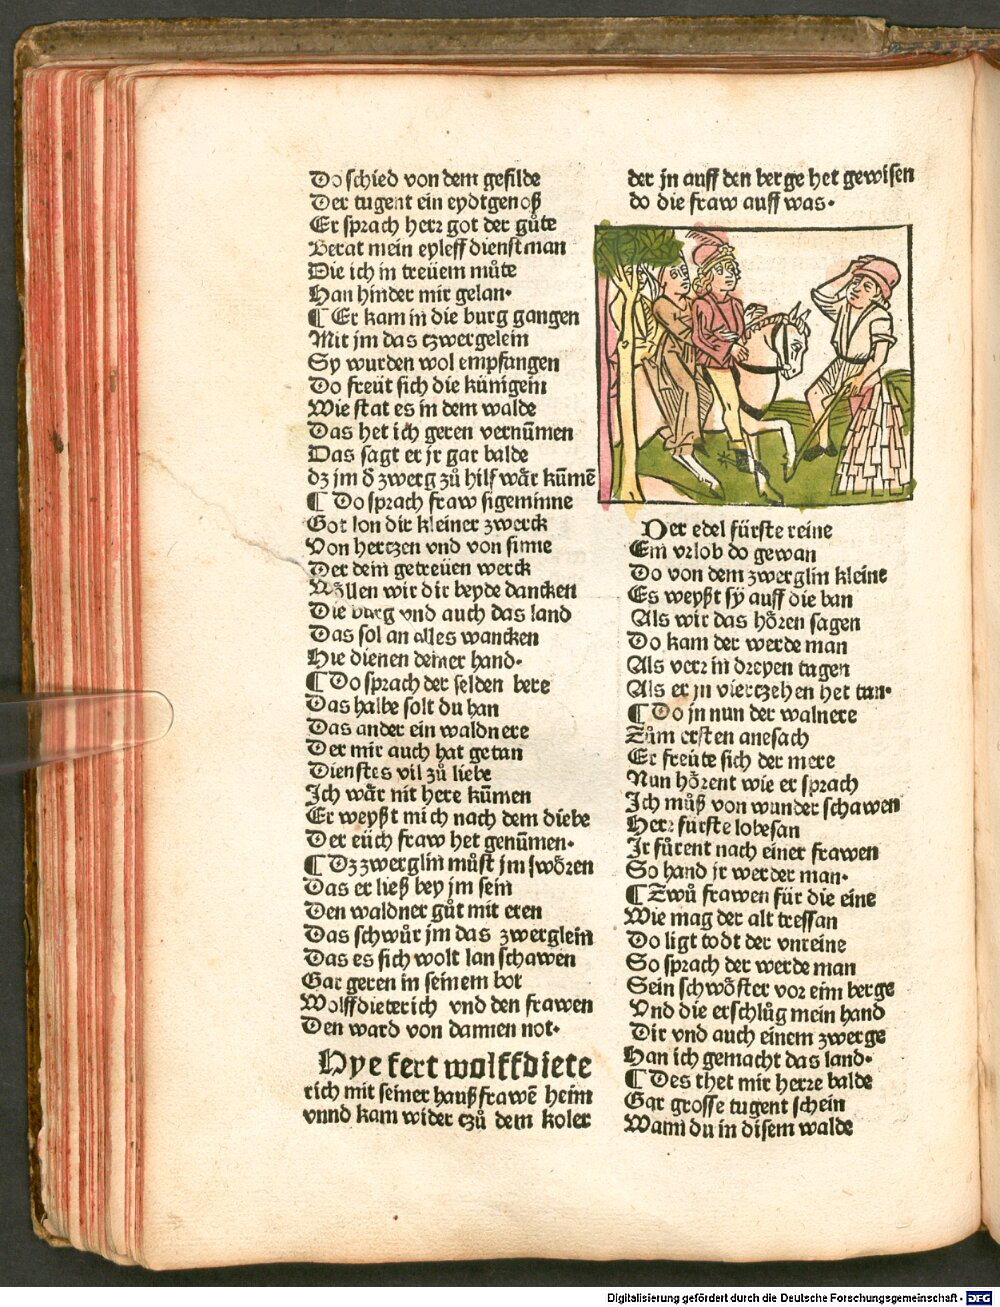 Do schied von dem gefilde
Der tugent ein eydtgenoß
Er sprach herr got der gůte
Berat mein eyleff dienstman
Die ich in treüem můte
Han hinder mir gelan.
¶ Er kam in die burg gangen
Mit jm das tzwergelein
Sy wurden wol empfangen
Do freüt sich die künigein
Wie stat es in dem walde
Das het ich geren vernūmen
Das sagt er jr gar balde
dz jm d̄ zwerg zů hilf wår kūmē
¶ Do sprach fraw sigeminne
Got lon dir kleiner zwerck
Von hertzen vnd von sinne
Der dein getreüen werck
Wöllen wir dir beyde dancken
Die burg vnd auch das land
Das sol an alles wancken
Hie dienen deiner hand.
¶ Do sprach der selden bere
Das halbe solt du han
Das ander ein waldnere
Der mir auch hat getan
Dienstes vil zů liebe
Ich wår nit here kūmen
Er weyßt mich nach dem diebe
Der eüch fraw het genūmen.
¶ Dz zwerglin můst jm swören
Das er ließ bey jm sein
Den waldner gůt mit eren
Das schwůr jm das zwerglein
Das es sich wolt lan schawen
Gar geren in seinem bot
Wolffdieterich vnd den frawen
Den ward von dannen not.
Hye fert wolffdiete
rich mit seiner haußfrawē heim
vnnd kam wider tzů dem koler
der jn auff den berge het gewisen
do die fraw auff was.
Der edel fürste reine
Ein vrlob do gewan
Do von dem zwerglin kleine
Es weyßt sy auff die ban
Als wir das hören sagen
Do kam der werde man
Als verr in dreyen tagen
Als er jn viertzehen het tan.
¶ Do jn nun der walnere
Zům ersten anesach
Er freüte sich der mere
Nun hörent wie er sprach
Ich můß von wunder schawen
Herr fürste lobesan
Ir fůrent nach einer frawen
So hand jr werder man.
¶ Zwů frawen für die eine
Wie mag der alt tressan
Do ligt todt der vnreine
So sprach der werde man
Sein schwöster vor eim berge
Vnd die erschlůg mein hand
Dir vnd auch einem zwerge
Han ich gemacht das land.
¶ Des thet mir herre balde
Gar grosse tugent schein
Wann du in disem walde
Digitalisierung gefördert durch die Deutsche Forschungsgemeinschaft - DFG